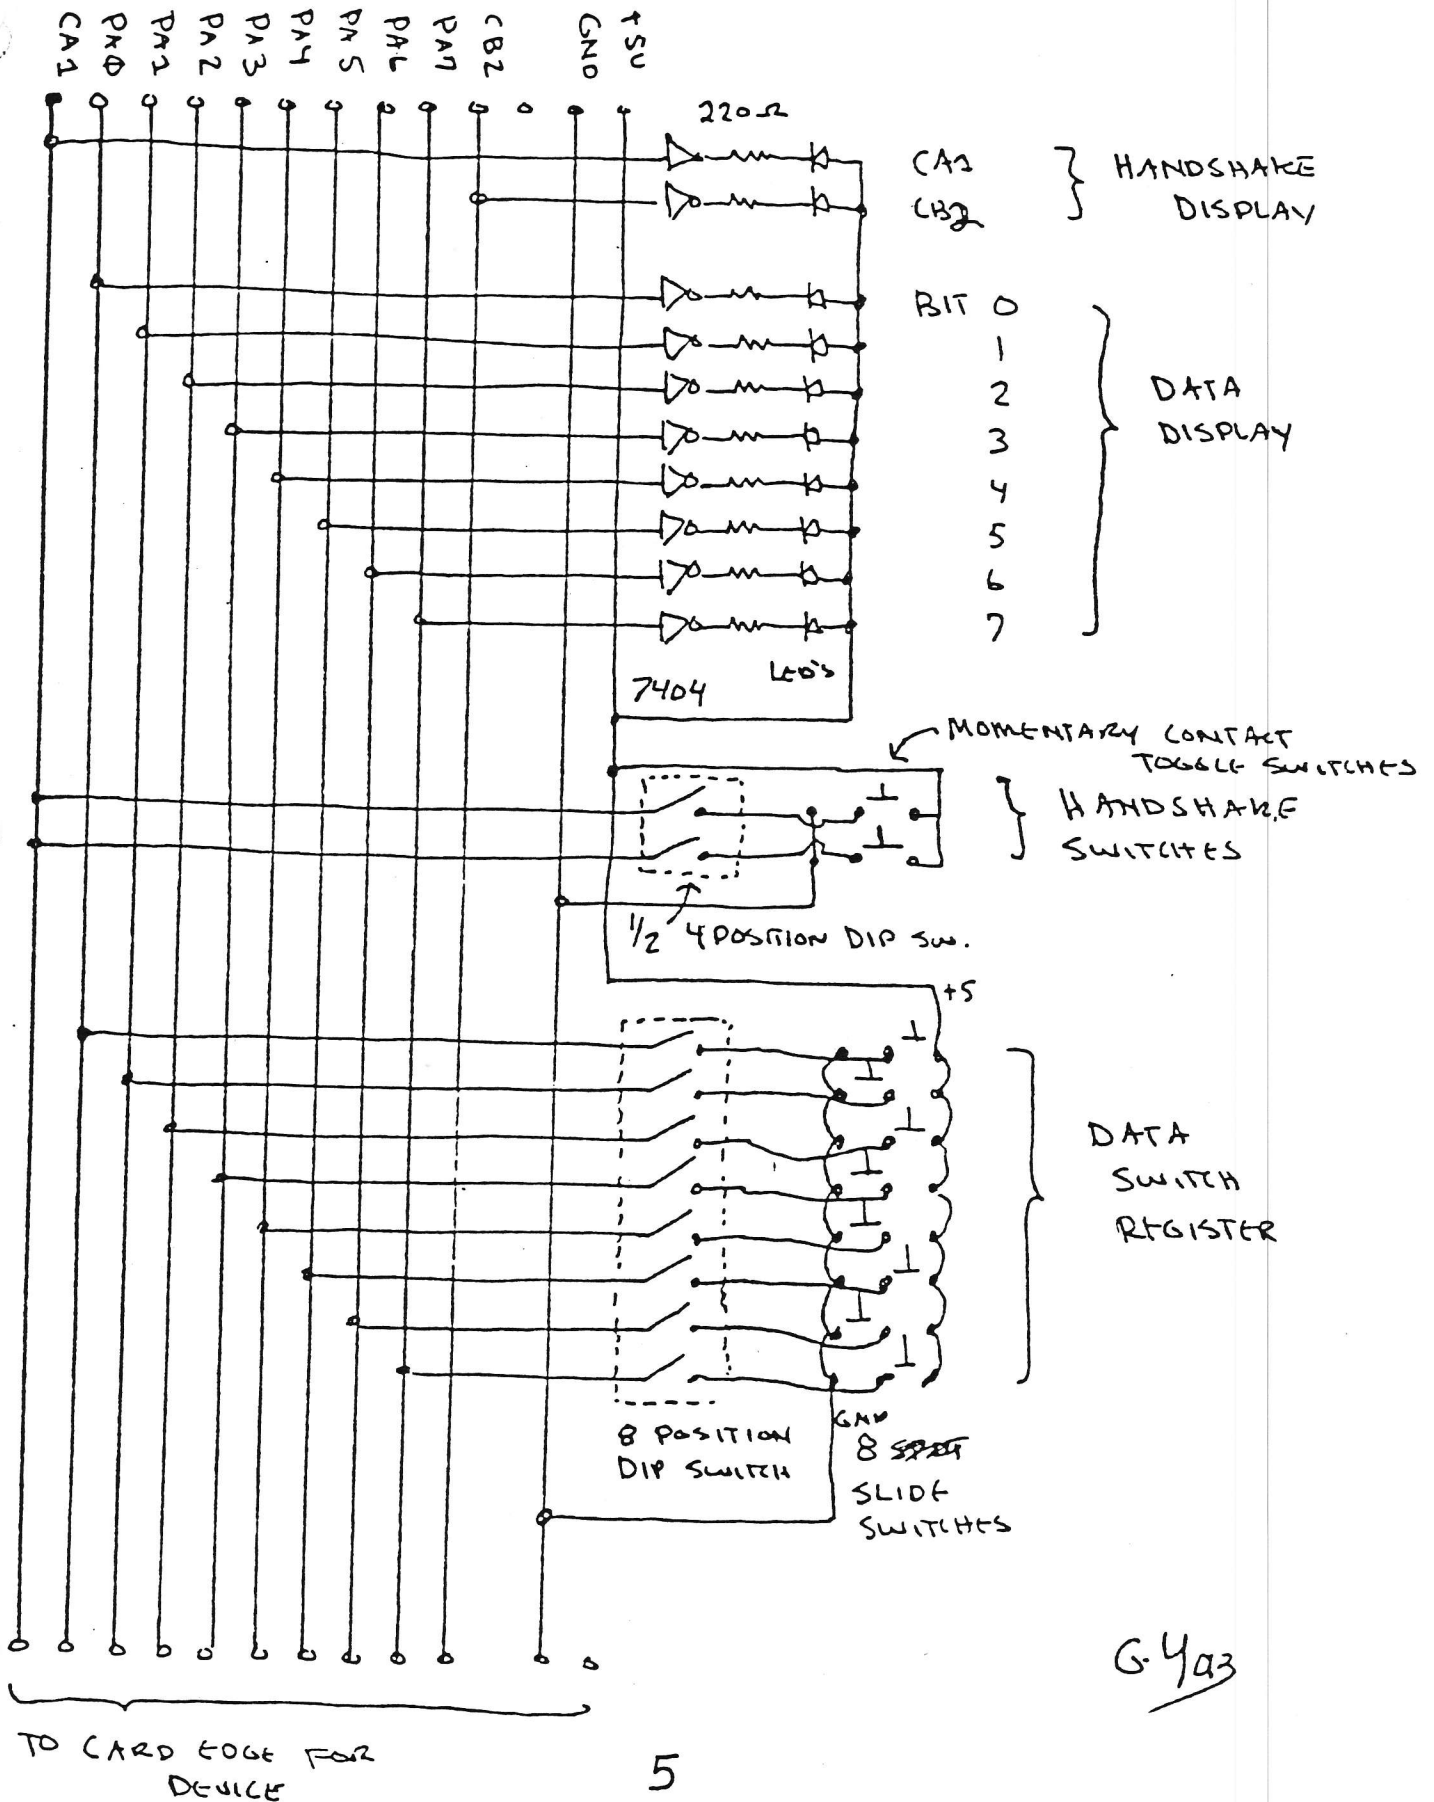 CA1
PA0
PA1
PA2
PA3
PA4
PA5
PA6
PA7
CB2
GND
+5V
220Ω
CA1
CB2
HANDSHAKE
DISPLAY
BIT 0
1
2
3
4
5
6
7
DATA
DISPLAY
LED's
7404
MOMENTARY CONTACT
TOGGLE SWITCHES
HANDSHAKE
SWITCHES
1/2 4 POSITION DIP SW.
+5
DATA
SWITCH
REGISTER
8 POSITION
DIP SWITCH
GND
8
SLIDE
SWITCHES
TO CARD EDGE FOR
DEVICE
5